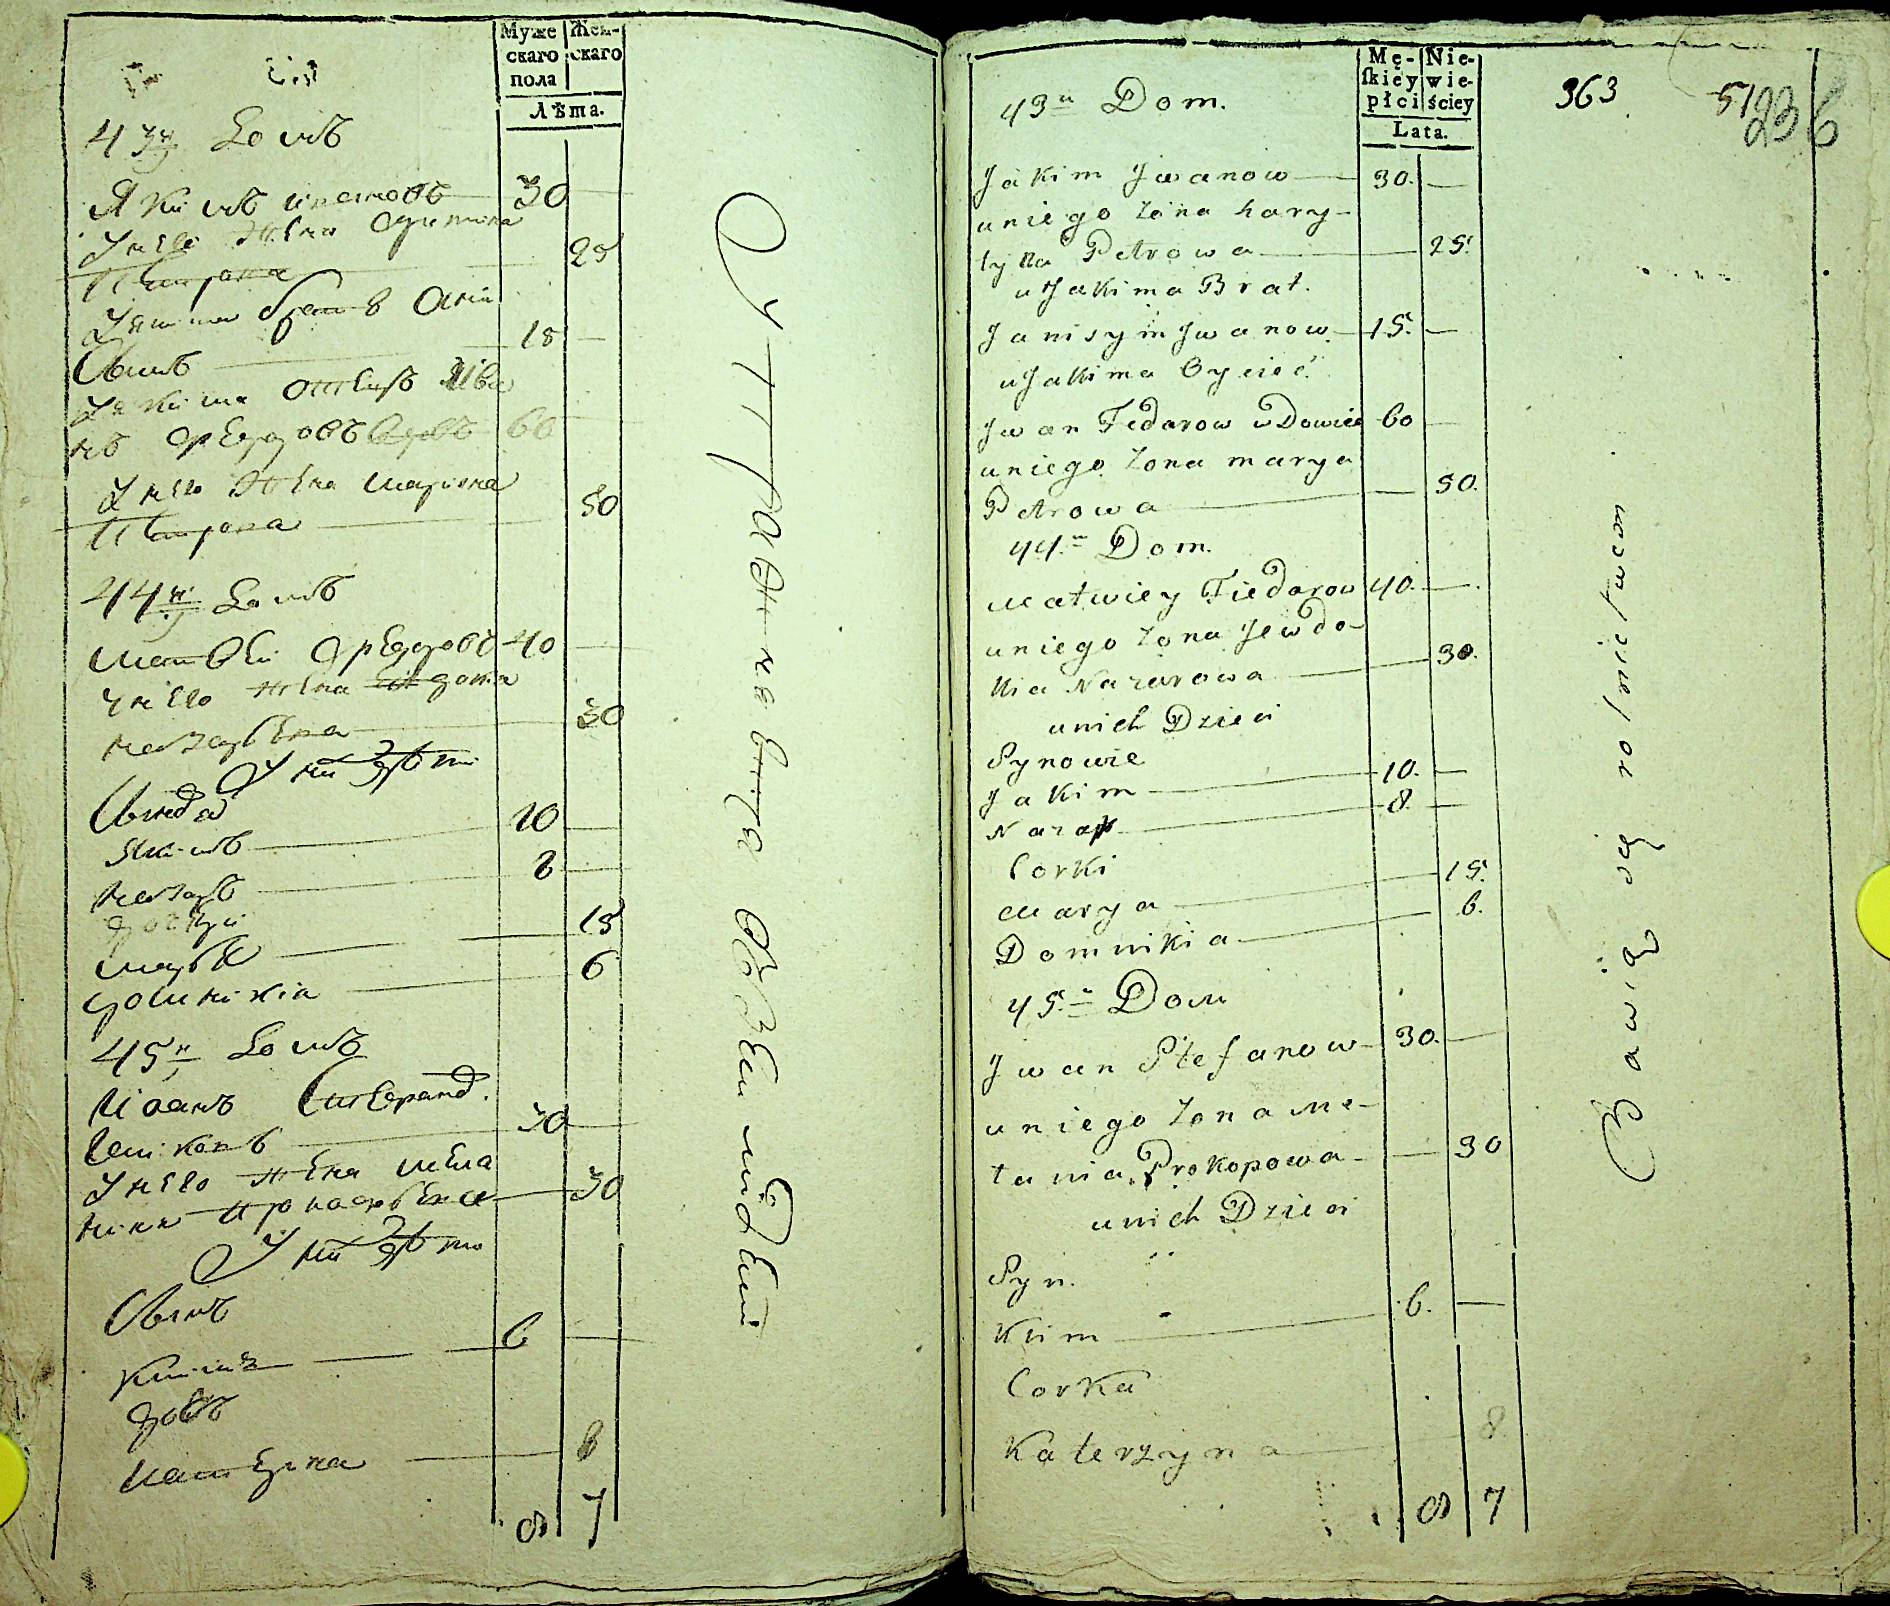 Муже
скаго
пола
Жен-
скаго
Лѣта.
43й Домъ
Якимъ Ивановъ 30
У него жена
Петрова 25
Якима братъ Они
симъ 15
Якима отецъ Ива
нъ Федоровъ вдовъ 60
У него жена Мариена
Петрова 50
44й Домъ
Матвей Федоровъ 40
У него жена Евдокия
Назарова 30
У них дѣти
Якимъ 10
Назаръ 8
дочери
Марья 15
Домникiа 6
45й Домъ
Иванъ
У него жена Мела
нiя 30
У них дѣти
Сынъ
Климъ 6
дочь
Катерина 8
8 7
Упражняются
Mę-
skiey
płci
Nie-
wie-
ściey
Lata.
363
51
236
43u Dom.
Jakim Jwanow 30.
uniego Żona hary-
tyna Petrowa 25.
u Jakima Brat.
Janisym Jwanow 15.
u Jakima Oyciec
Jwan Fedarow w Dowiec 60
uniego Żona marya
Petrowa 50.
44.u Dom.
Matwiey Fiedorow 40.
uniego Żona Jewdo-
kia Nazarowa 30.
unich Dzieci
Synowie
Jakim 10.
Nazar 8.
Corki
Marya 15.
Domnikia 6.
45.u Dom
Jwan Stefanow 30.
uniego Żona Me-
tania Prokopowa 30
unich Dzieci
Syn.
Klim 6.
Corka
Katerzyna 8
8 7
Bawią się rolnictwem